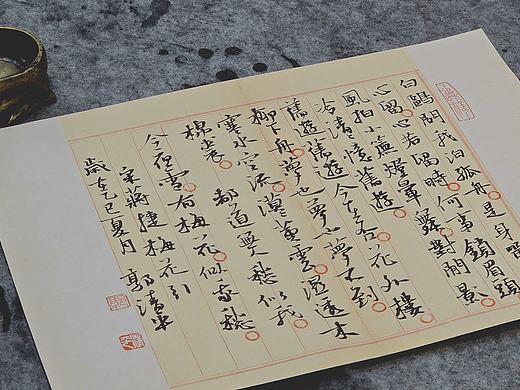 白鷗問我泊孤舟是身留
心留心若留時何事鎖眉頭
風拍小簾燈暈舞對閒影
冷清清憶舊遊
舊遊舊遊今在否花外樓
柳下舟夢也夢也夢不到
寒水空流漠漠黃雲濕透木
棉裘 都道無人愁似我
今夜雪有梅花似我愁
宋蔣捷梅花引
歲在乙巳夏月 郭清